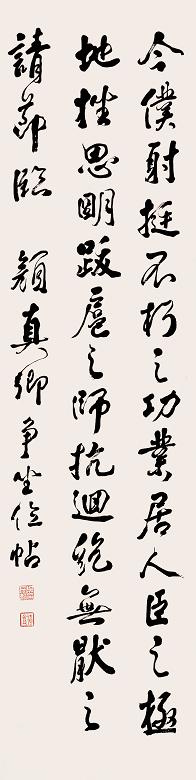 今僕射挺不朽之功業居人臣之極
地挫思明跋扈之師抗迴紇無猒之
請節臨 顏真卿争坐位帖